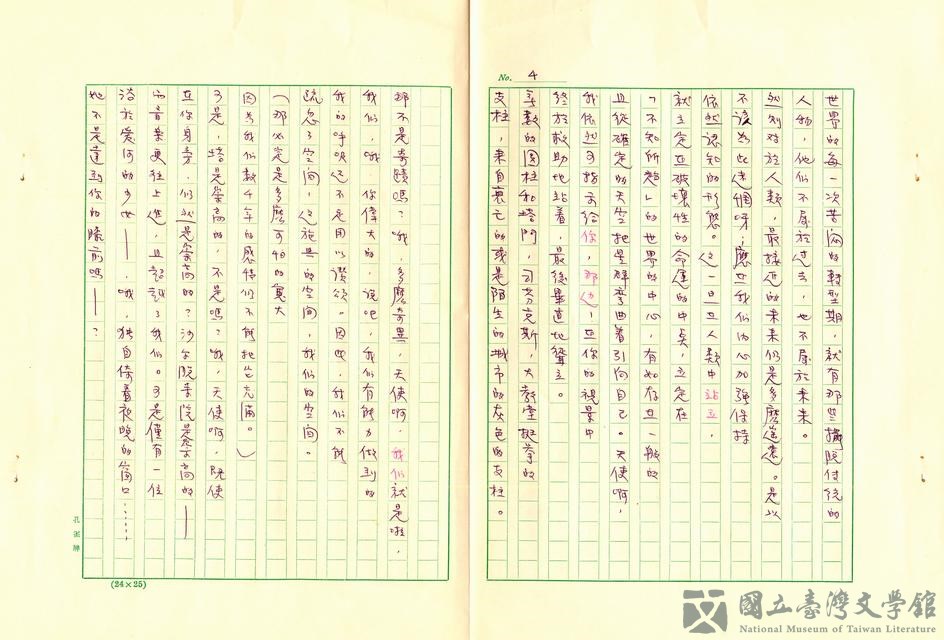 No. 4
世界的每一次苦悶的轉型期，就有那些擺脫傳統的
人物，他們不屬於過去，也不屬於未來。
然則對於人類，最接近的未來仍是多麼遙遠。是以
不該為此迷惘呀；應在我們內心加強保持
依然認知的形態。這一旦在人類中站立，
就立定在破壞性的命運的中央，立定在
「不知所趨」的世界的中心，有如存在一般的
且從確定的天空把星群彎曲著引向自己。天使啊，
我依然可指示給你，那邊；在你的視景中
終於救助地站著，最後畢直地聳立。
無數的圓柱和塔門，司芬克斯，大教堂挺拳的
支柱，來自衰亡的或是陌生的城市的灰色的支柱。
那不是奇蹟嗎？哦，多麼奇異，天使啊，我們就是啦，
我們，哦，你偉大的，說吧，我們有能力做到的
我的呼吸還不足用以讚頌。因此，我們不能
疏忽了空間，這施與的空間，我們的空間。
（那必定是多麼可怕的寬大
因為我們數千年的感情們不能把它充滿。）
可是，塔是崇高的，不是嗎？哦，天使啊，既使
在你身旁，仍然是崇高的？沙爾院寺院是崇高的——
而音樂更往上進，且超越了我們。可是僅有一位
浩於愛河的少女——，哦，獨自倚着夜晚的窗口……
她不是達到你的膝前嗎——？
孔雀牌
(24×25)
國立臺灣文學館
National Museum of Taiwan Literature